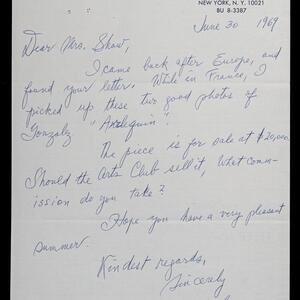 NEW YORK, N.Y. 10021
BU 8-3387
June 30 1969
Dear Mrs. Shaw,
I came back after Europe, and
found your letter. While in France, I
picked up these two good photos of
Gonzalz "Arlequin".
The piece is for sale at $20,000.
Should the Arts Club sell it, what com-
mission do you take?
Hope you have a very pleasant
summer.
Kindest regards,
Sincerely